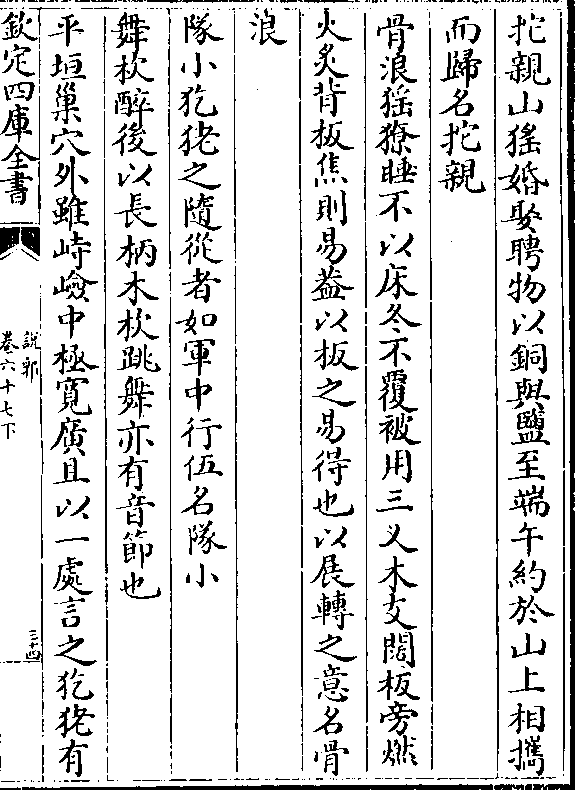 拕親山猺婚娶聘物以銅與鹽至端午約於山上相攜
而歸名拕親
骨浪猺獠睡不以床冬不覆被用三乂木支闊板旁燃
火炙背板焦則易葢以板之易得也以展轉之意名骨
浪
隊小犵狫之隨從者如軍中行伍名隊小
舞杴醉後以長柄木杴跳舞亦有音節也
平垣巢穴外雖峙嶮中極寛廣且以一處言之犵狫有
欽定四庫全書
說郛
卷六十七下
三十四